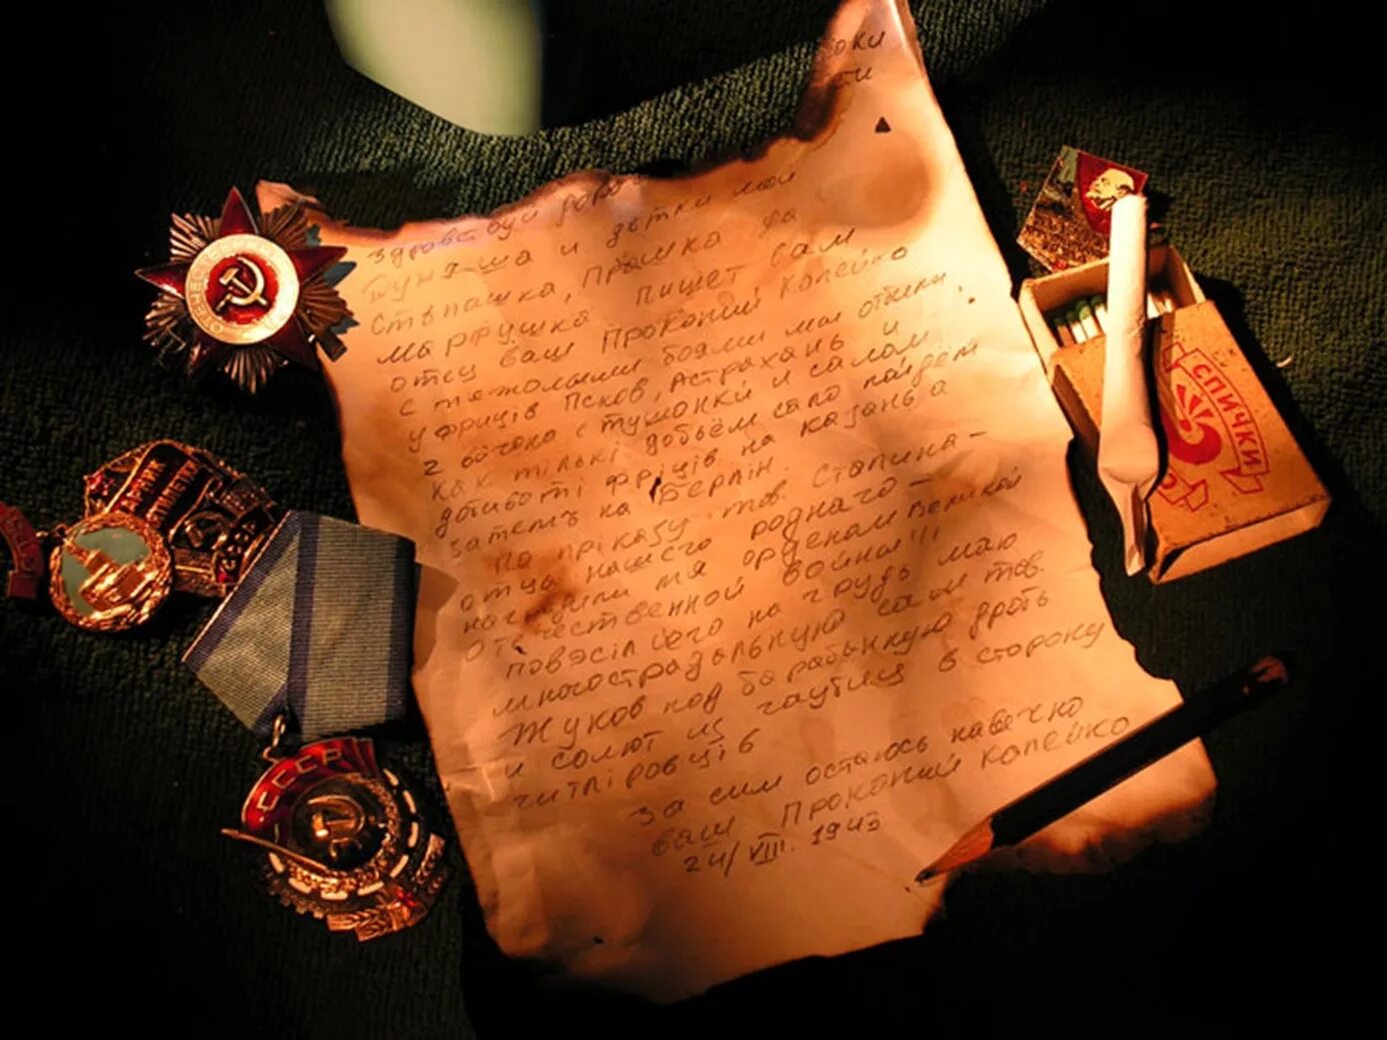 оки
ти
здравствуй доро
Дуняша и детки мои
Стпашка, Прошка да
Марфушка пишет вам
отец ваш Прокопий Копейко
с тяжолыми боями мы отбили
у фриців Псков, Астрахань и
2 бочки с тушонкй и салом
как тількі добьём сало пойдём
добиваті фріців на казань а
затемъ на Берлін.
По приказу тов. Сталина-
отца нашего роднаго-
наградили мя орденам Великой
Отечественной войны!!!
повэсіл його на грудь маю
многострадальную сам тов.
Жуков под барабанную дробь
и солют из гаубиц в сторону
гитліровців
За сим остаюсь навечно
ваш Прокопий Копейко
24/VIII. 1943
ОТЕЧЕСТВЕННАЯ
СССР
СССР
СПИЧКИ